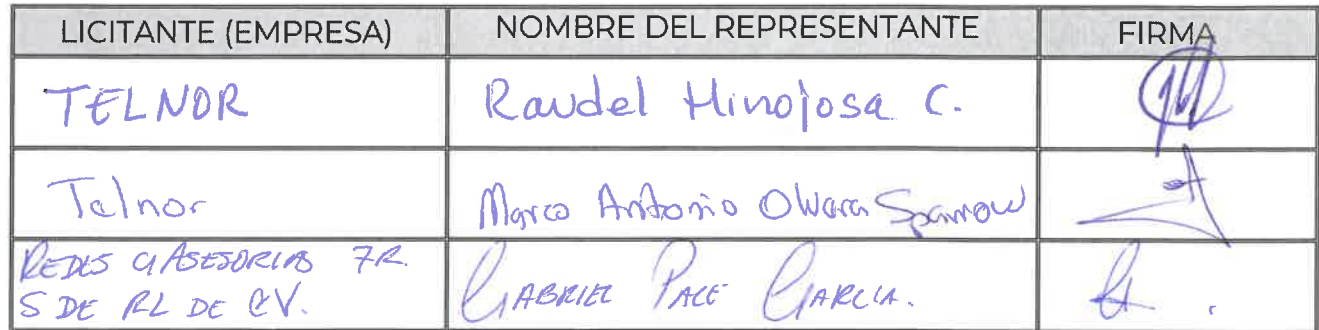 LICITANTE (EMPRESA) NOMBRE DEL REPRESENTANTE FIRMA
TELNOR Raudel Hinojosa C.
Telnor Marco Antonio Olvera Sparrow
REDES Y ASESORIAS 7R.
S DE RL DE CV. GABRIEL PALE GARCIA.